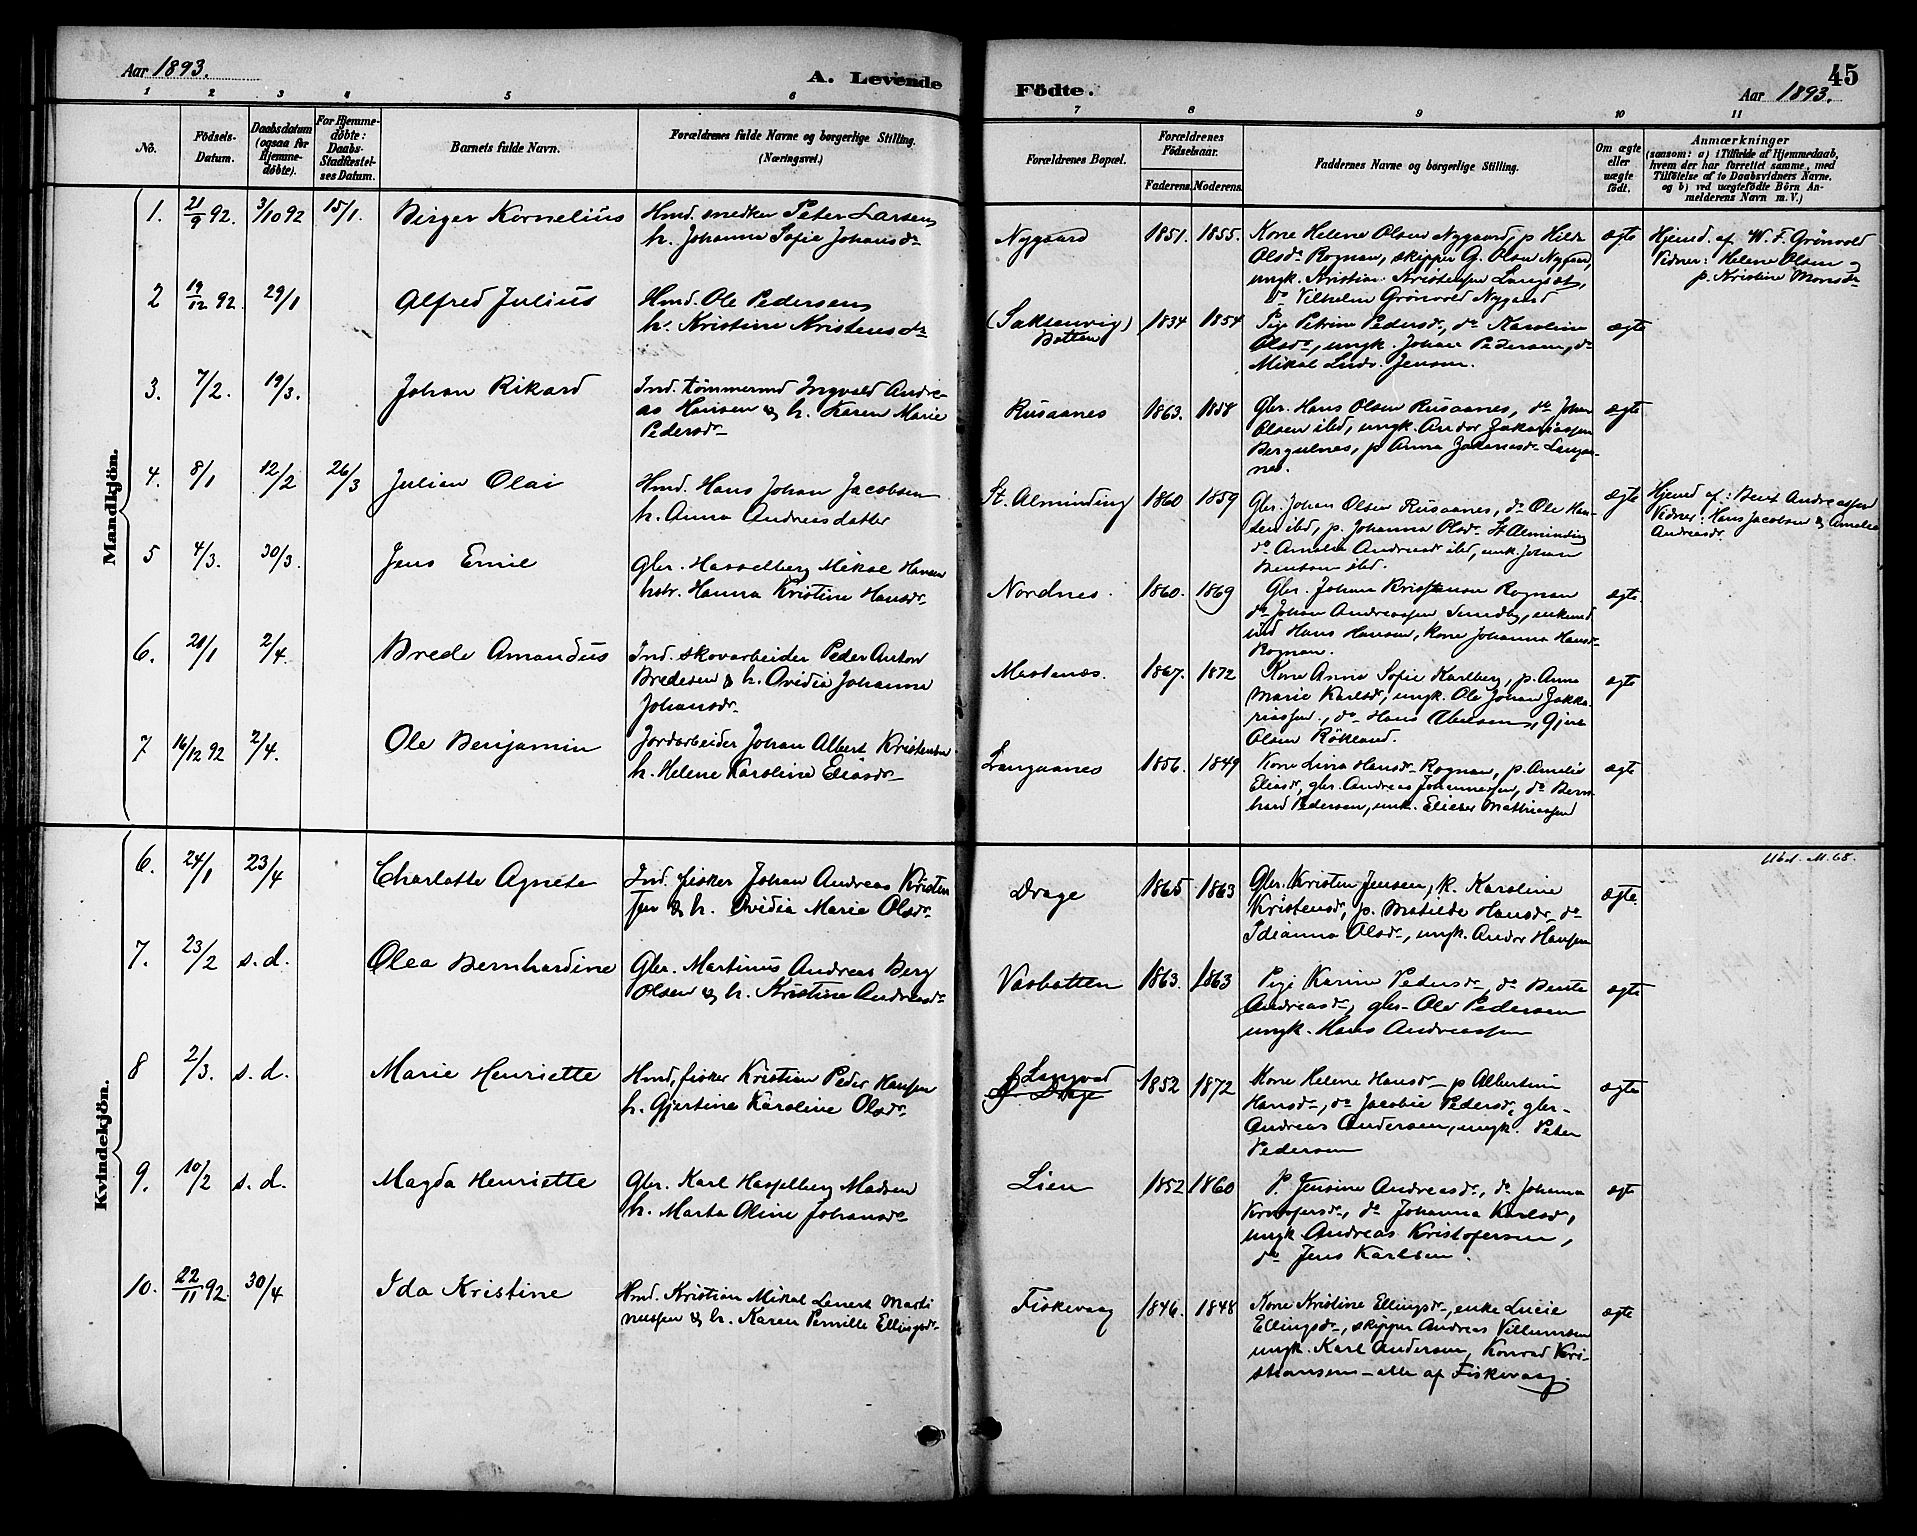 Aar 1893.
A. Levende Födte.
45
Aar 1893.
1 2 3 4 5 6 7 8 9 10 11
No.
Födsels-
Datum.
Daabsdatum
(ogsaa for
Hjemme-
döbte).
For Hjemme-
döbte:
Daabs-
Stadfæstel-
ses Datum.
Barnets fulde Navn.
Forældrenes fulde Navne og borgerlige Stilling.
(Næringsvei.)
Forældrenes Bopæl.
Forældrenes
Födselsaar.
Faderens. Moderens.
Faddernes Navne og borgerlige Stilling.
Om ægte
eller
uægte
födt.
Anmærkninger
(saasom: a) i Tilfælde af Hjemmedaab,
hvem der har forrettet samme, med
Tilföielse af to Daabsvidners Navne,
og b) ved uægtefödte Börn An-
melderens Navn m. V.)
Mandkjön.
1. 21/9 92. 3/10 92 15/1. Birger Kornelius
Hmd. snedker Peter Larsen,
h. Johanna Sofie Johansdr
Nygaard 1851. 1855.
Kone Helene Olsen Nygaard, p Hilda
Olsdr Rognan, skipper G. Olsen Nygaard,
ungk. Kristian Kristensen Langset,
do Vilhelm Grönvold Nygaard
ægte
Hjemd. af W. F. Grönvold
Vidner: Helene Olsen og
p. Kristine Monsdr
2 19/12 92. 29/1 Alfred Julius
Hmd. Ole Pedersen,
h. Kristine Kristensdr
(Saksenvig)
Botten
1834 1854
Pige Petrine Pedersdr, do Karoline
Olsdr, ungk. Johan Pedersen, do
Mikal Ludv. Jensen.
ægte
3. 7/2. 19/3. Johan Rikard
Ind. tömmermd Ingvald Andre-
as Hansen & h. Karen Marie
Pedersdr
Rusaanes 1863. 1858
Gbr. Hans Olsen Rusaanes, do Johan
Olsen ibd, ungk. Andor Zakariassen
Bergulnes, p Anna Zakariasdr Langaa-
nes.
ægte
4. 8/1 12/2 26/3 Julian Olai
Hmd. Hans Johan Jacobsen
h. Anna Andreasdatter
St. Alminding 1860 1859
Gbr. Johan Olsen Rusaanes, do Ole Han-
sen ibd, p. Johanna Olsdr St Alminding
do Amalia Andreasdr ibd, enk. Johan
Bentsen ibd.
ægte
Hjemd af: Bent Andreassen
Vidner: Hans Jacobsen & Amalia
Andreasdr.
5 4/3. 30/3. Jens Emil
Gbr. Hasselberg Mikal Hansen
hstr. Hanna Kristine Hansdr
Nordnes. 1860. 1869
Gbr. Johan Kristensen Rognan
do Johan Andreassen Sundby, enkemd
ind Hans Hansen, kone Johanna Hansdr
Rognan.
ægte.
6. 20/1 2/4. Brede Amandus
Ind. skovarbeider Peder Anton
Bredesen & h. Ovidia Johanna
Johansdr
Mastenæs. 1867. 1872
Kone Anna Sofie Karlberg, p. Anna
Marie Karlsdr, ungk. Ole Johan Zakka-
riassen, do Hans Ibersen, Gjert
Olsen Rökland.
ægte
7 16/12 92 2/4. Ole Benjamin
Jordarbeider Johan Albert Kristensen
h. Helene Karoline Eliasdr
Langaanes 1856. 1849
Kone Lina Hansdr Rognan, p. Amalie
Eliasdr, gbr. Andreas Johannessen, do Bern-
hard Pedersen, enk. Elieser Mathiassen
ægte
Kvindekjön.
6. 24/1 23/4 Charlotte Agnete
Ind. fisker Johan Andreas Kristen-
sen & h. Ovidia Marie Olsdr
Drage 1865 1863
Gbr. Kristen Jensen, k. Karoline
Kristensdr, p. Matilde Hansdr do
Idianna Olsdr, ungk. Andor Hansen
ægte.
Ubd. M.68.
7. 23/2 s. d. Olea Bernhardine
Gbr. Martinus Andreas Berg
Olsen & h. Kristine Andreasdr
Vasbotten 1863. 1863
Pige Karine Pedersdr, do Berite
Andreasdr, gbr. Ole Pedersen
ungk. Hans Andreassen
ægte
8 2/3. s. d. Marie Henriette
Hmd, fisker Kristian Peder Hansen
h. Gjertine Karoline Olsdr
Langvad
Drage
1852 1872
Kone Helene Hansdr p Albertine
Hansdr, do Jacobie Pedersdr, gbr.
Andreas Andersen, ungk. Peter
Pedersen
ægte
9. 10/2 s. d. Magda Henriette
Gbr. Karl Hasselberg Madsen
h. Marta Oline Johansdr
Lien 1852 1860
P. Jensine Andreasdr, do Johanna
Kristofersdr, do Johanna Karlsdr,
ungk Andreas Kristofersen,
do Jens Karlsen.
ægte
10. 22/11 92. 30/4 Ida Kristine
Hmd. Kristian Mikal Lenert Marti
nussen & h. Karen Pernille Ellingsdr
Fiskevaag 1846. 1848
Kone Kristine Ellingsdr, enke Lucie
Ellingsdr, skipper Andreas Villumsen
ungk. Karl Andersen, Konrad Kri-
stiansen – alle af Fiskevaag.
ægte